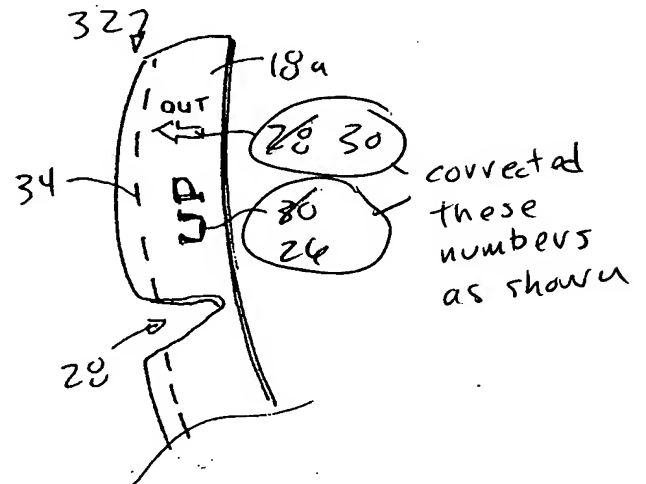 32
18a
OUT
28 30
34
UP
30
26
corrected
these
numbers
as shown
28